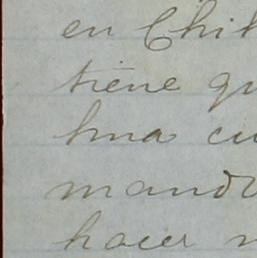 en Chil
tiene qu
hna cu
mand
hacer